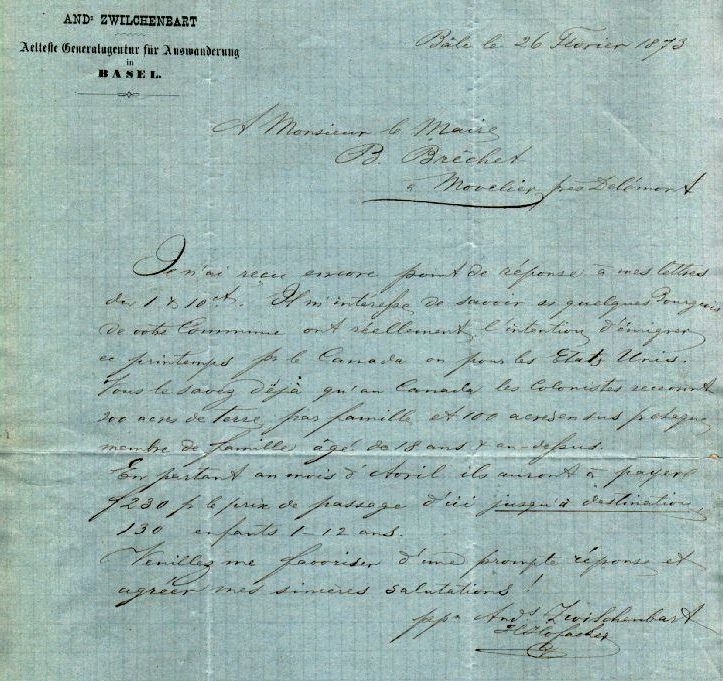 AND: ZWILCHENBART
Aelteste Generalagentur für Auswanderung
in
BASEL.
Bâle le 26 Fevrier 1873
A Monsieur le Maire
B. Bréchet
à Movelier près Delémont
Je n'ai reçu encore point de réponse à mes lettres
du 1 & 10 ct. Il m'interesse de savoir si quelques Bourgeois
de votre Commune ont réellement l'intention d'émigrer
ce printemps pr le Canada ou pour les Etats Unis.
Vous le savez déjà qu'au Canada les Colonistes reçoivent
200 acres de terre par famille et 100 acres en sus pr chaque
membre de famille âgé de 18 ans & au-dessus.
En partant au mois d'Avril ils auront à payer
f 230 p le prix de passage d'ici jusqu'à destination,
130 enfants 1-12 ans.
Veuillez me favoriser d'une prompte réponse et
agréer mes sincères salutations!
ppn Ands Zwilchenbart